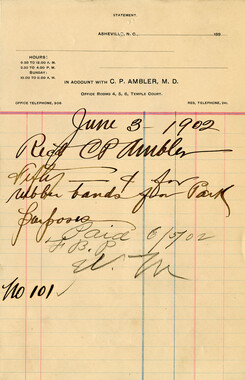 STATEMENT.
ASHEVILLE, N. C. 189
HOURS:
9.00 TO 12.00 A. M.
2.30 TO 4.00 P. M.
SUNDAY:
IN ACCOUNT WITH C. P. AMBLER, M. D.
OFFICE ROOMS 4, 5, 6, TEMPLE COURT.
OFFICE TELEPHONE, 206 RES. TELEPHONE, 241
June 3 - 1902
Recd CP Ambler
fifty ¢ for
rubber bands for Park
purposes
Paid 6/5/02
F. B. P
No 101